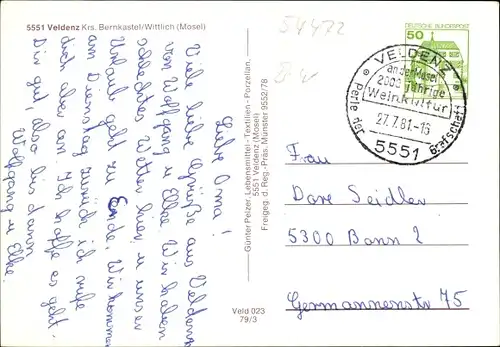 5551 Veldenz Krs. Bernkastel/Wittlich (Mosel)
54472
Liebe Oma!
Viele liebe Grüße aus Veldenz
von Wolfgang u. Elke. Wir haben
schlechtes Wetter hier u unser
Urlaub geht zu Ende. Wir kommen
am Dienstag zurück ich rufe
dich aber an. Ich hoffe es geht
Dir gut also bis dann
Wolfgang u Elke.
Günter Pelzer, Lebensmittel - Textilien - Porzellan,
5551 Veldenz (Mosel)
Freigeg. d. Reg.-Präs. Münster 9552/78
Veld 023
79/3
DEUTSCHE BUNDESPOST
50
VELDENZ
an der Mosel
2000 jährige
Weinkultur
27.7.81.-16
Perle der Grafschaft
5551
Frau
Dore Seidler
5300 Bonn 2
Germannenstr 75